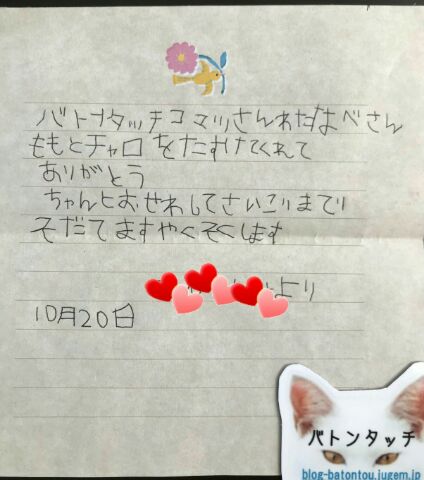 バトンタッチコマツさんわたなべさん
ももとチャロをたすけてくれて
ありがとう
ちゃんとおせわしてさいこりまでり
そだてますやくそくします
より
10月20日
バトンタッチ
blog-batontou.jugem.jp